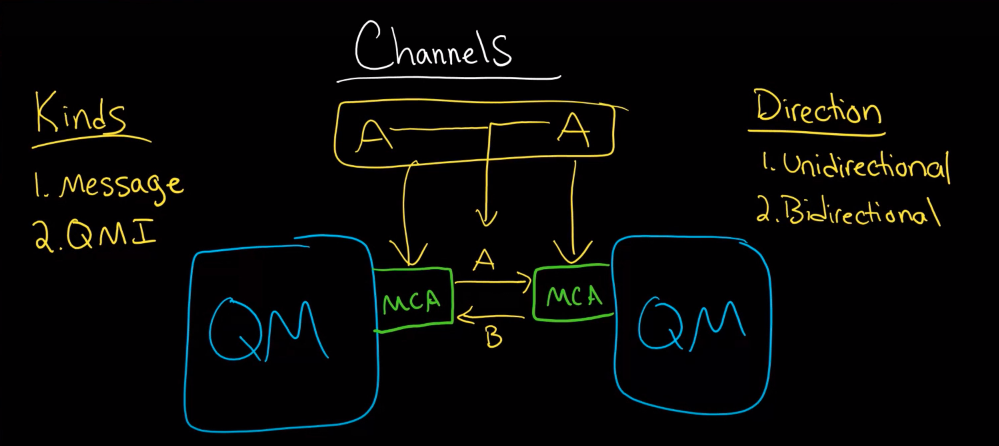 Channels
Kinds
1. Message
2. QMI
A A
Direction
1. Unidirectional
2. Bidirectional
QM
MCA
A
B
MCA
QM